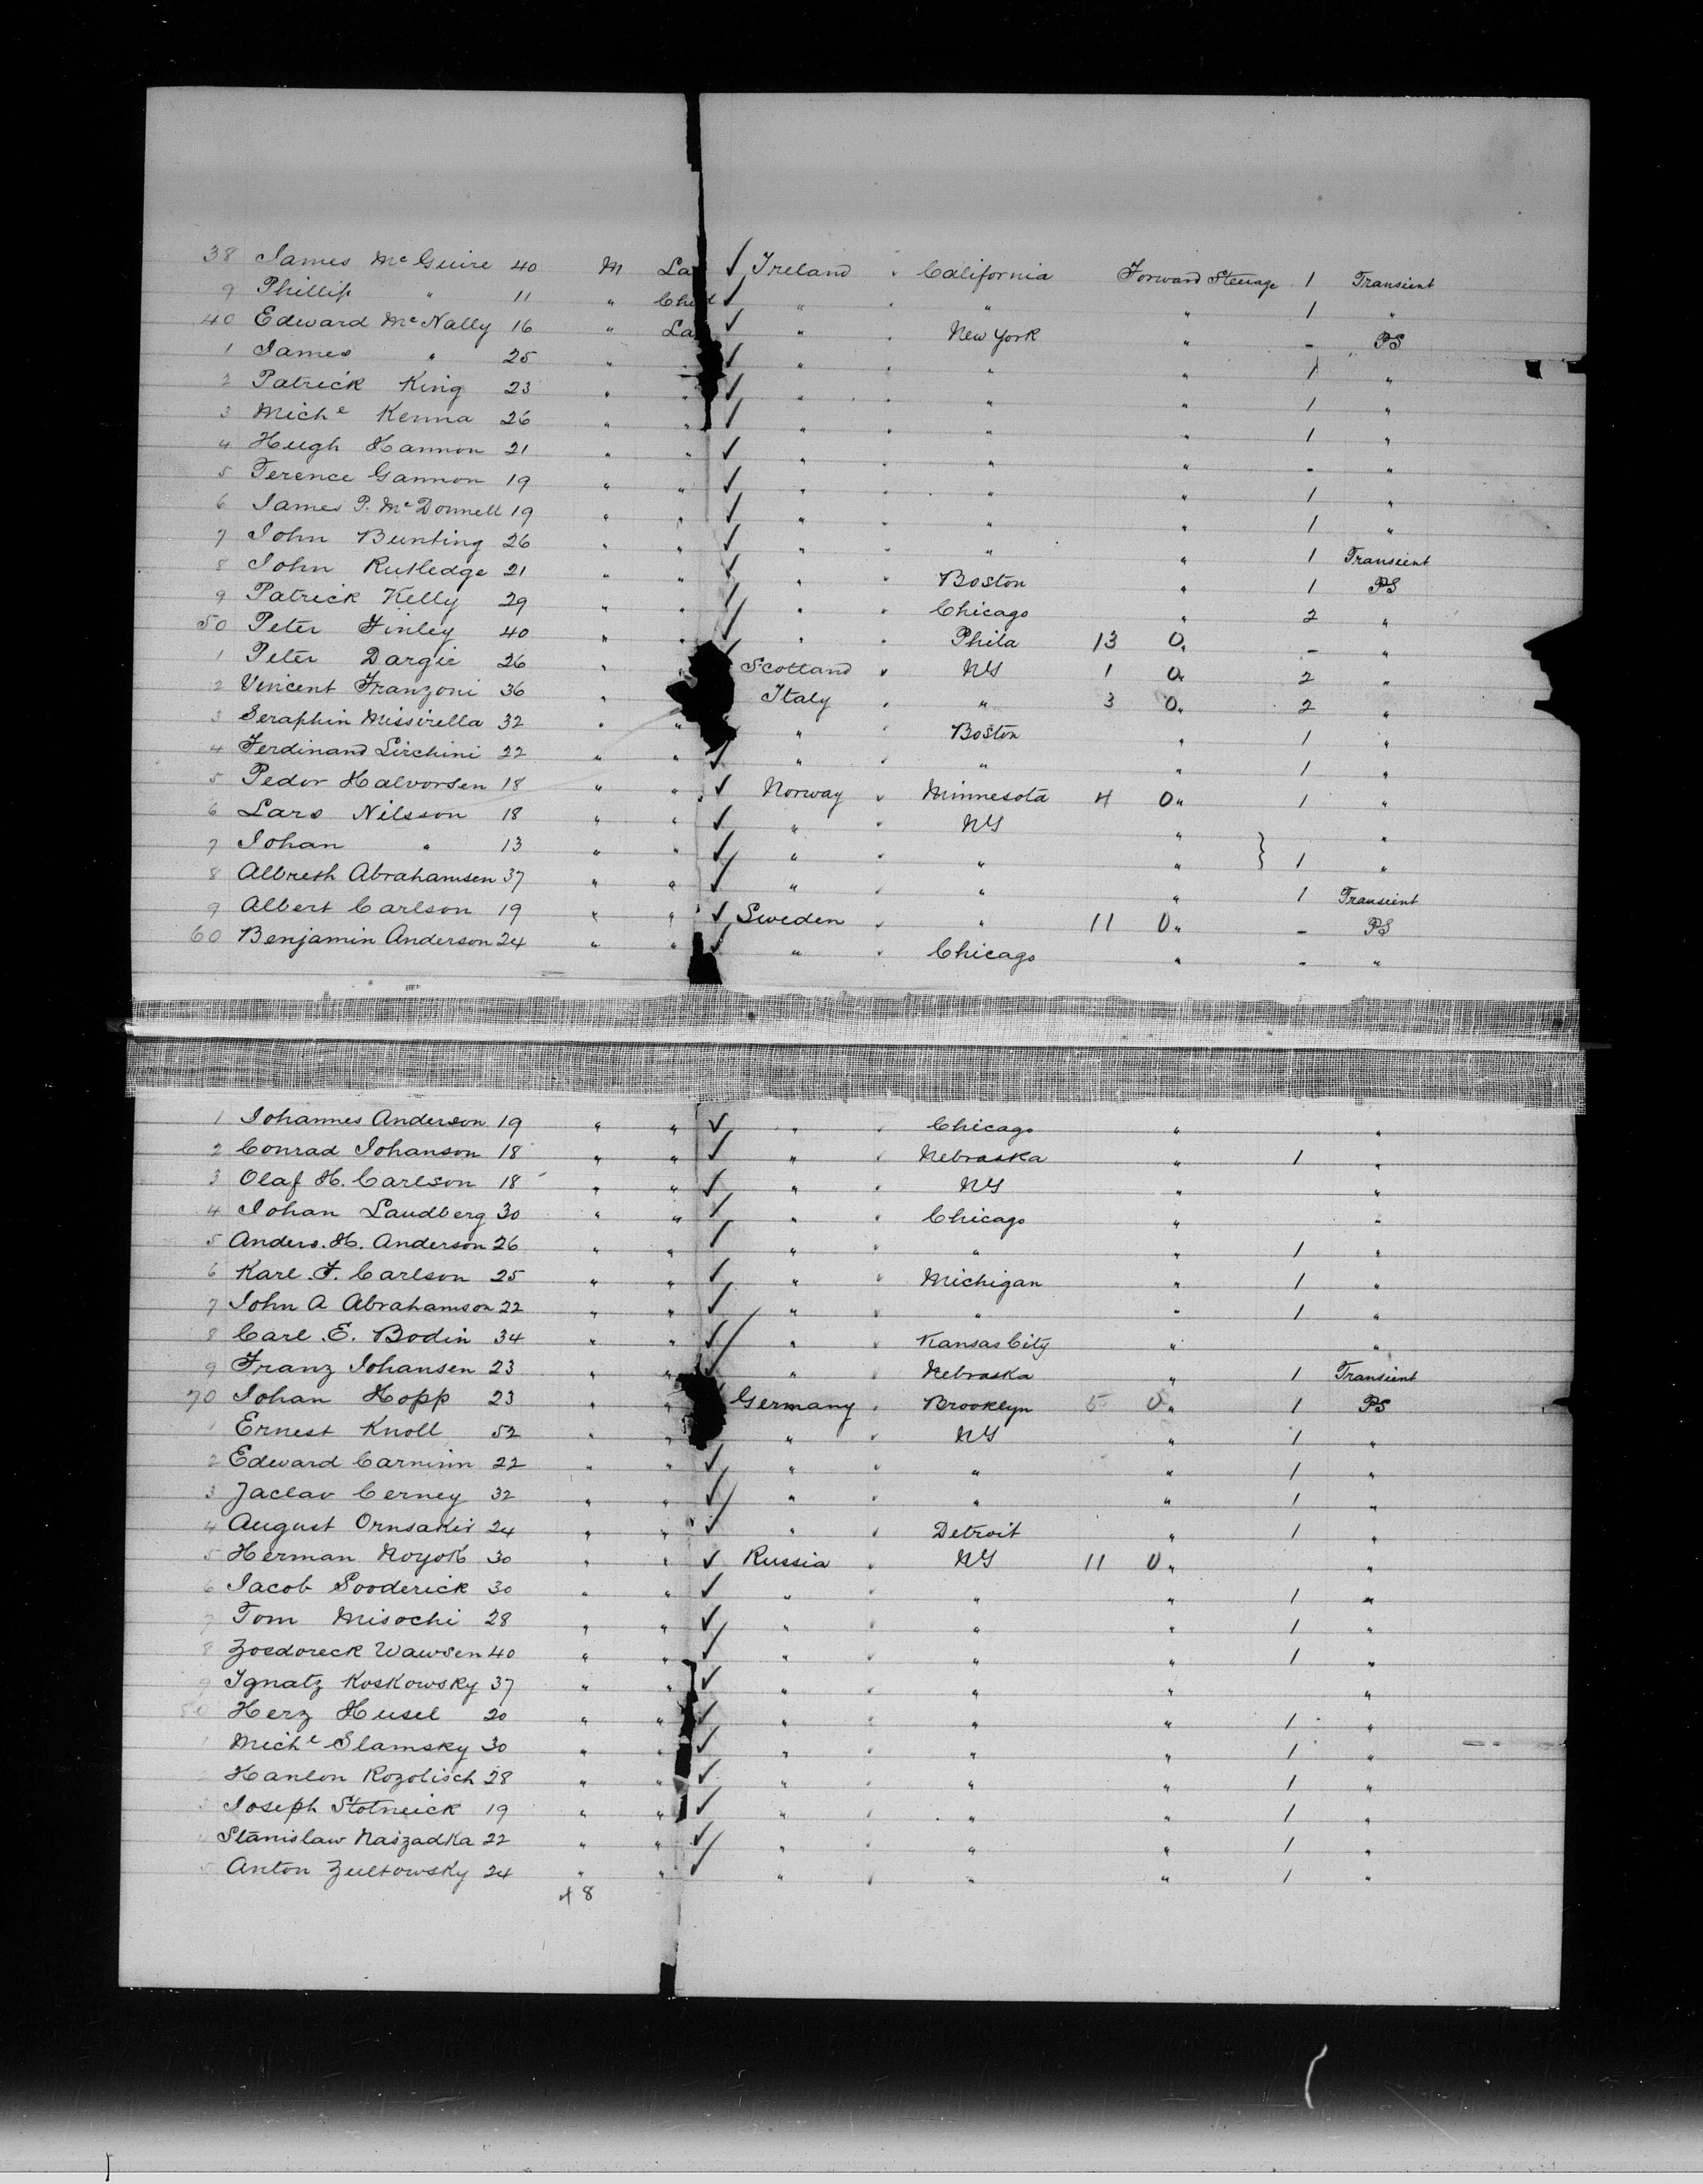 38 James McGuire 40 M La Ireland " California Forward Steerage 1 Transient
9 Phillip " 11 " Child " " " " 1 "
40 Edward McNally 16 " La " " New York " - PS
1 James " 25 " " " " " " 1 "
2 Patrick King 23 " " " " " " 1 "
3 Miche Kenna 26 " " " " " " 1 "
4 Hugh Hannon 21 " " " " " " - "
5 Terence Gannon 19 " " " " " " 1 "
6 James P. McDonnell 19 " " " " " " 1 "
7 John Bunting 26 " " " " " " 1 Transient
8 John Rutledge 21 " " " " Boston " 1 PS
9 Patrick Kelly 29 " " " " Chicago " 2 "
50 Peter Finley 40 " " " " Phila 13 0 " - "
1 Peter Dargie 26 " Scotland " NY 1 0 " 2 "
2 Vincent Franzoni 36 " Italy " " 3 0 " 2 "
3 Seraphin Missirella 32 " " " " Boston " 1 "
4 Ferdinand Lirchini 22 " " " " " " 1 "
5 Pedor Halvorsen 18 " " Norway " Minnesota 4 0 " 1 "
6 Lars Nilsson 18 " " " " NY " "
7 Johan " 13 " " " " " " } 1 "
8 Albreth Abrahamsen 37 " " " " " " 1 Transient
9 Albert Carlson 19 " " Sweden " " 11 0 " - PS
60 Benjamin Anderson 24 " " " " Chicago " - "
1 Johannes Anderson 19 " " " " Chicago " "
2 Conrad Johanson 18 " " " " Nebraska " 1 "
3 Olaf H. Carlson 18 " " " " NY " "
4 Johan Laudberg 30 " " " " Chicago " "
5 Anders. H. Anderson 26 " " " " " " 1 "
6 Karl. F. Carlson 25 " " " " Michigan " 1 "
7 John A Abrahamson 22 " " " " " " 1 "
8 Carl. E. Bodin 34 " " " " Kansas City " "
9 Franz Johansen 23 " " " " Nebraska " 1 Transient
70 Johan Hopp 23 " " Germany " Brooklyn 5 0 " 1 PS
1 Ernest Knoll 52 " " " " NY " 1 "
2 Edward Carninn 22 " " " " " " 1 "
3 Jaclav Cerney 32 " " " " " " 1 "
4 August Ornsakis 24 " " " " Detroit " 1 "
5 Herman Noyok 30 " " Russia " NY 11 0 " "
6 Jacob Sooderick 30 " " " " " " 1 "
7 Tom Misochi 28 " " " " " " 1 "
8 Zosdoreck Wawsen 40 " " " " " " 1 "
9 Ignatz Koskowsky 37 " " " " " " "
80 Herz Husel 20 " " " " " " 1 "
1 Miche Slamsky 30 " " " " " " 1 "
Hanlon Rozolisch 28 " " " " " " 1 "
3 Joseph Stotneick 19 " " " " " " 1 "
4 Stanislaw Naszadka 22 " " " " " " 1 "
5 Anton Zultowsky 24 " " " " " " 1 "
48